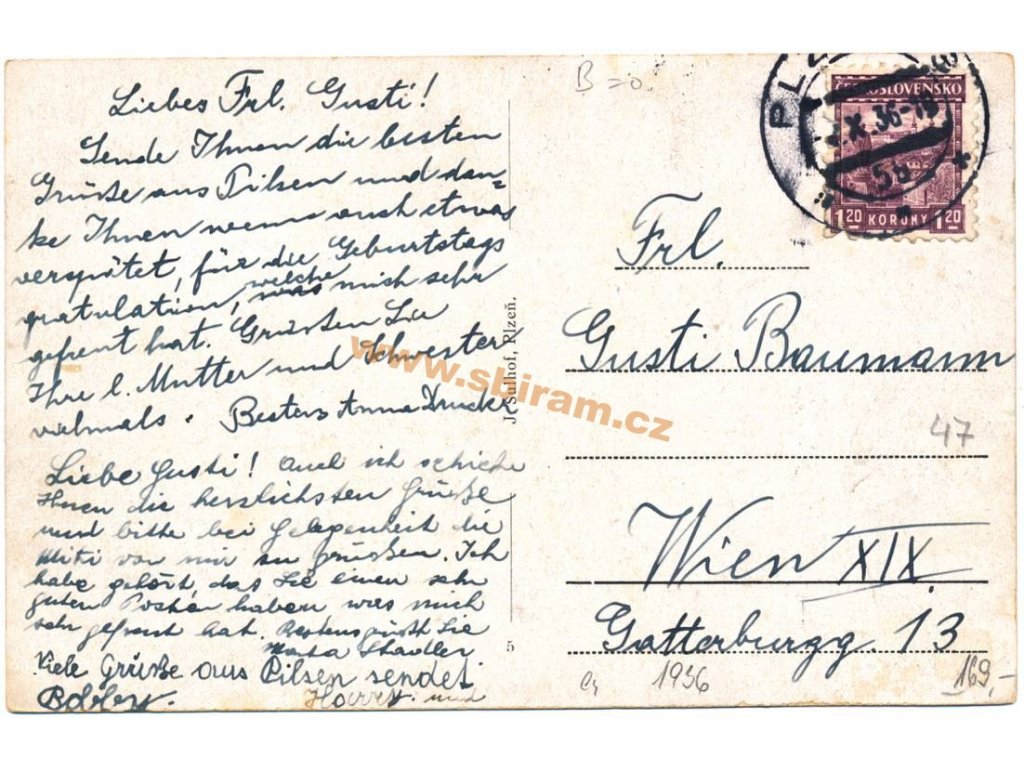 Liebes Frl. Gusti!
Sende Ihnen die besten
Grüße aus Pilsen und dan=
ke Ihnen wenn auch etwas
verspätet, für die Geburtstags
gratulation, welche mich sehr
gefreut hat. Grüssen Sie
Ihre l. Mutter und Schwester
vielmals. Bestens Anna Drucker
Liebe Gusti! Auch ich schicke
Ihnen die herzlichsten Grüße
und bitte bei Gelegenheit die
Mitzi von mir zu grüßen. Ich
habe gehört, das Sie einen sehr
guten Posten haben was mich
sehr gefreut hat. Bestens grüßt Sie
Marta Stadler
Viele Grüße aus Pilsen sendet
Harry und
Bobby.
J. Sulhof, Plzeň.
5
www.sbiram.cz
B=0.
ČESKOSLOVENSKO
1.20 KORUNY 1.20
PLZ
X.36
5b
Frl.
Gusti Baumann
47
Wien XIX.
Gatterburgg. 13
1936
169,-